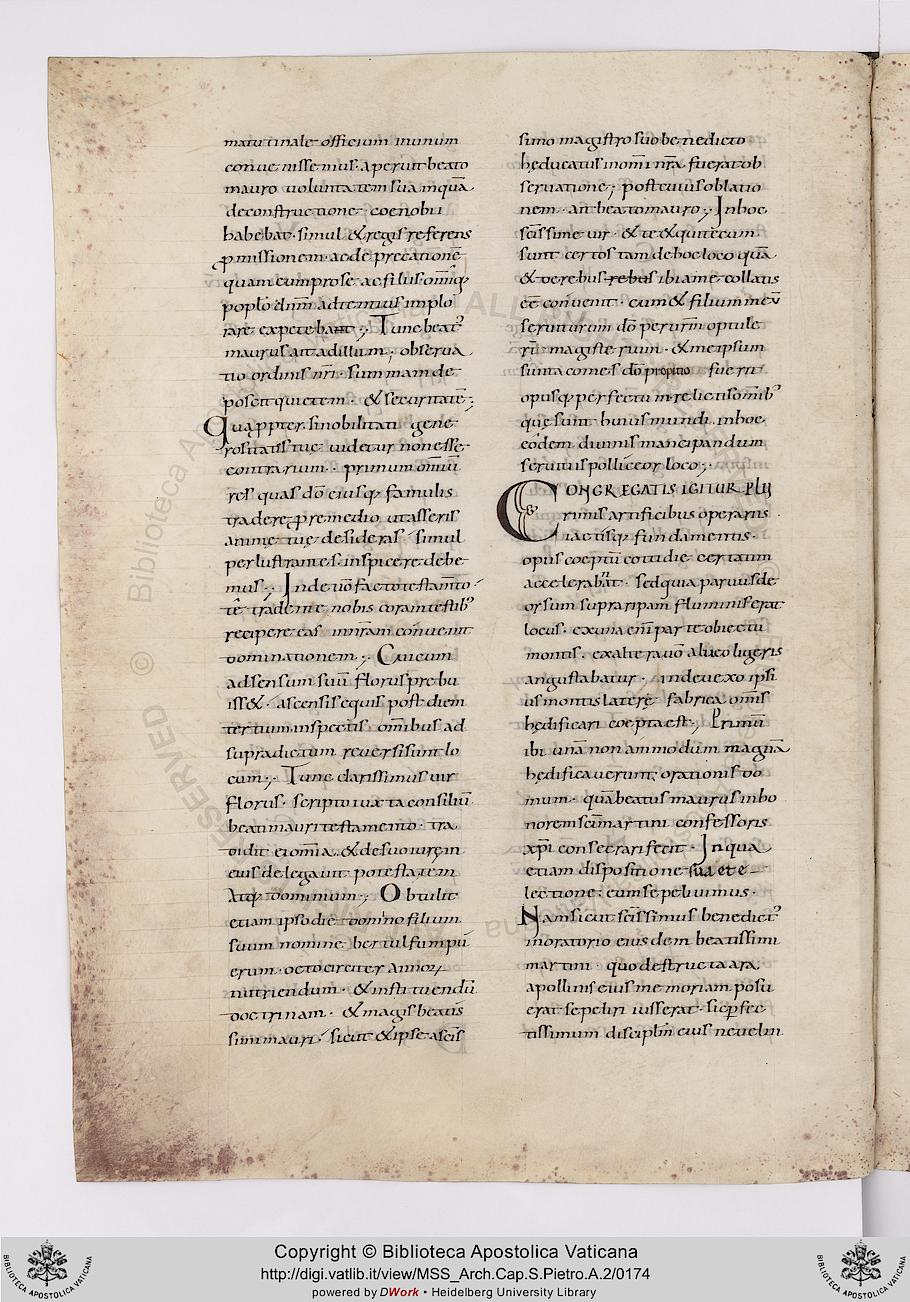 matutinale officium in unum
conuenissemus. aperuit beato
mauro uoluntatem suā inquā
de constructione coenobii
habebat. simul & regis referens
ꝓmissionem. ac de precationē
quam cum pro se ac filiis omniq;
poplo dn̄m ad tentius implo
rare expetebant ;. Tunc beat᾽
maurus ait ad illum ; obserua
tio ordinis nr̄i. summam de
poscit quietem. & securitatē ;
Quapp̱ter. si nobilitati gene
rositatis tuę uidetur non esse
contrarium. primum omniū
res quas dō eiusq; famulis
tradere ꝓ remedio ut asseris
animę tuę desideras. simul
perlustrantes. inspicere debe
mus ;. Inde uō facto testam̄to
tē trademē nobis coram testib᾽
recipere eas in nr̄am conuenit
dominationem ;. Cui cum
adsensum suū florus prebu
iss&. ascensis equis post diem
tertium inspectis omnibus ad
supradictum reuersi sunt lo
cum ;. Tunc clarissimus uir
florus. scripto iuxta consiliū
beati mauri testamento. tra
didit ei om̄ia. & de suo iure in
eius delegauit potestatem
Atq; dominium ;. Obtulit
etiam ipso die domino filium
suum nomine bertulfum pu
erum. octo circiter annoꝝ
nutriendum. & instituendū
doctrinam. & magis beatis
simi mauri. sicut & ipse a sc̄is
simo magistro suo benedicto
hęducatus in omi nr̄a fuerat ob
seruatione ; post cuius oblatio
nem. ait beato mauro ;. In hoc
sc̄issime uir. & te & qui tecum
sunt certos tam de hoc loco quā
& de rebus rebus ibi a me collatis
eē conuenit. cum & filium meū
seruiturum dō per urm̄ optule
rī magisterium. & me ipsum
si uita comes dō propitio fuerit
opusq; perfectū in relictis omnib᾽
quę sunt huius mundi. in hoc
eodem diuinis mancipandum
seruitiis polliceor loco ;.
CONGREGATIS IGITUR PLU
rimis artificibus operariis
iactisq; fundamentis.
opus coeptū cottidie certatim
accelerabat. sed quia paruus de
orsum supra ripam fluminis erat
locus. ex una eni᷑ parte obiectu
montis. ex altera uō alueo ligeris
angustabatur. in deuexo ipsi
us montis latere fabrica om̄is
hędificari coepta est ;. Primū
ibi unā non ammodum magnā
hędificauerunt orationis do
mum. quā beatus maurus in ho
norem sc̄i martini confessoris
xp̄i consecrari fecit. In qua
etiam dispositione sua et e
lectione. eum sepeliuimus.
Nam sicut sc̄issimus benedict᾽
in oratorio eiusdem beatissimi
martini. quo destructa ara
apollinis eius memoriam posu
erat sepeliri iusserat. sic ꝑfec
tissimum discipl̄m eius ne uel in
Copyright © Biblioteca Apostolica Vaticana
http://digi.vatlib.it/view/MSS_Arch.Cap.S.Pietro.A.2/0174
powered by DWork • Heidelberg University Library
BIBLIOTECA APOSTOLICA VATICANA
BIBLIOTECA APOSTOLICA VATICANA